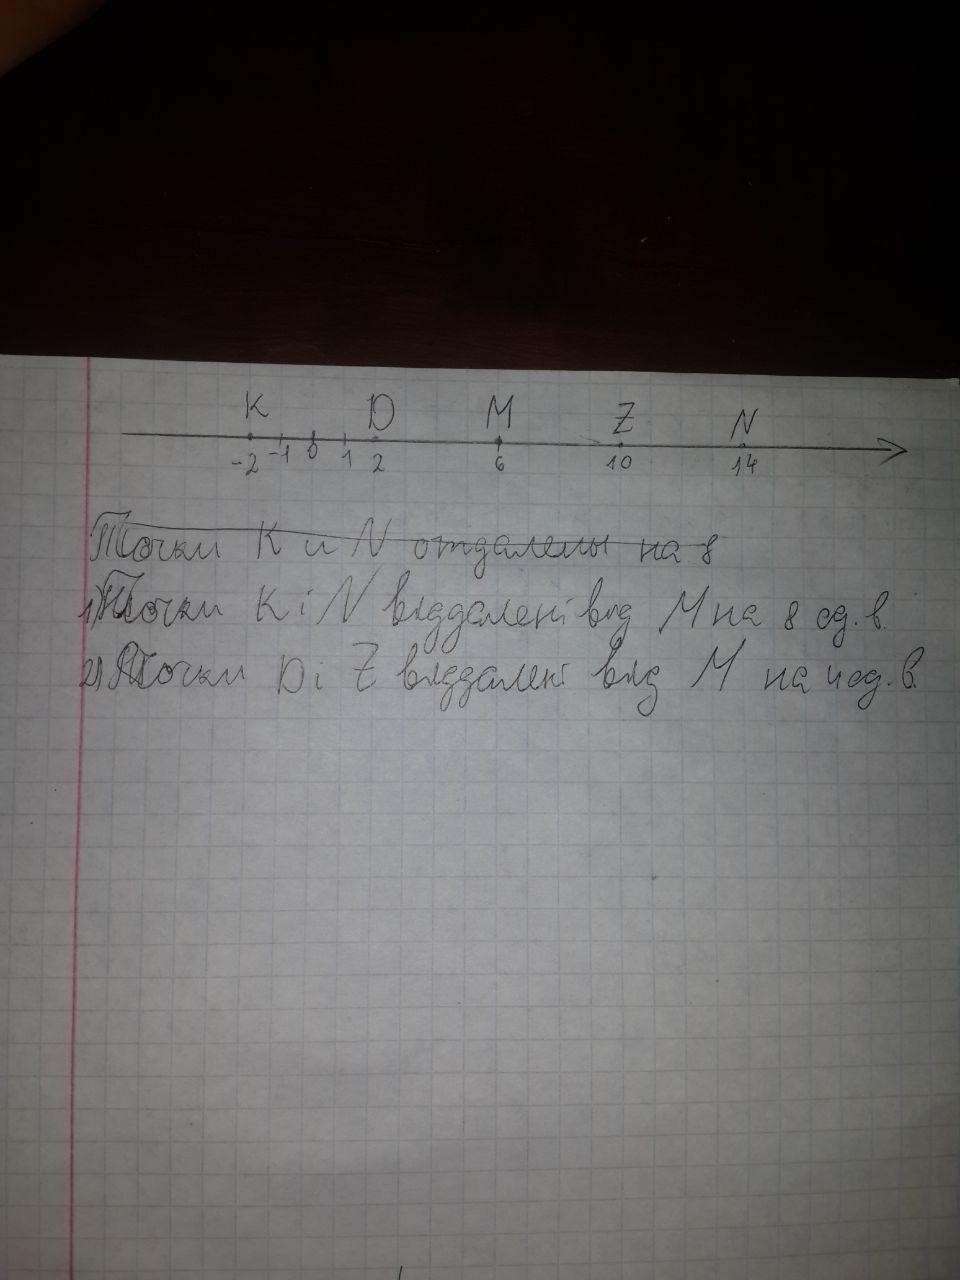 K D M Z N
-2 -1 0 1 2 6 10 14
Точки K и N отдалены на 8
1) Точки K і N віддалені від M на 8 од. в.
2) Точки D і Z віддалені від M на 4 од. в.